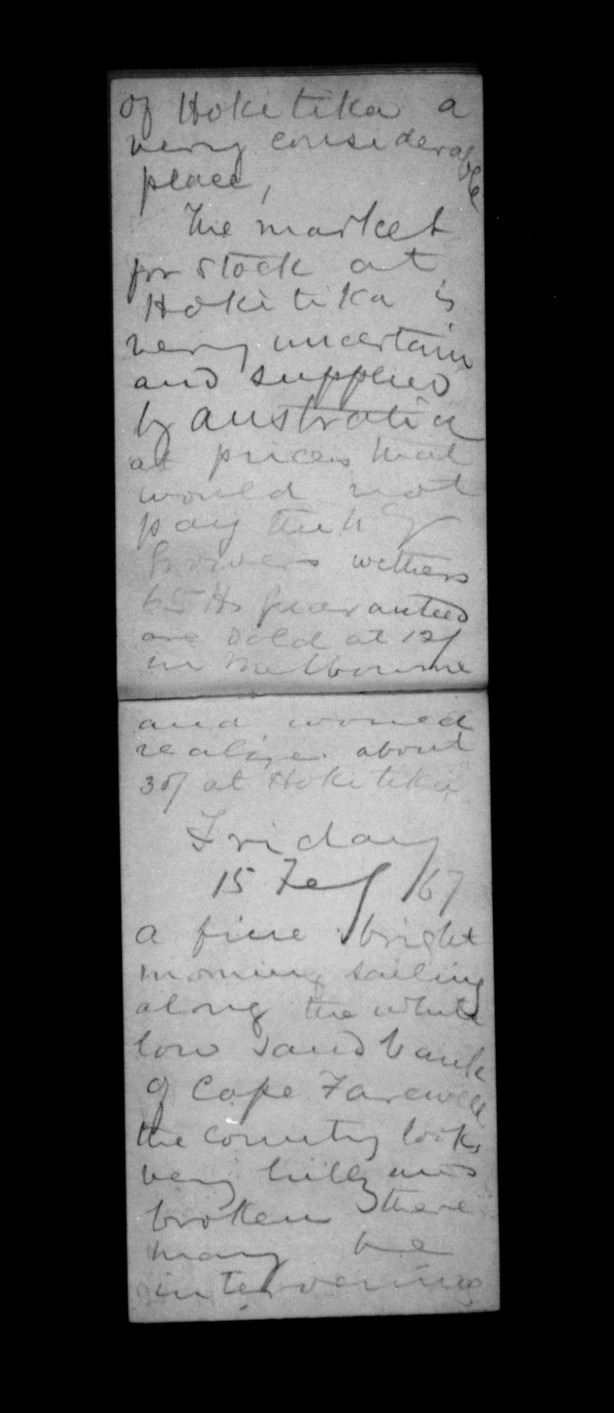 of Hokitika a
very considerable
place,
The market
for stock at
Hokitika is
very uncertain
and supplied
by australia
at prices that
would not
pay the N Z
Growers wethers
65 lbs guaranteed
are sold at 12/
in Melbourne
and would
realize about
30/ at Hokitika
Friday
15 Feb /67
a fine bright
morning sailing
along the white
low sand bank
of Cape Farewell
the country looks
very hilly and
broken there
may be
intervening